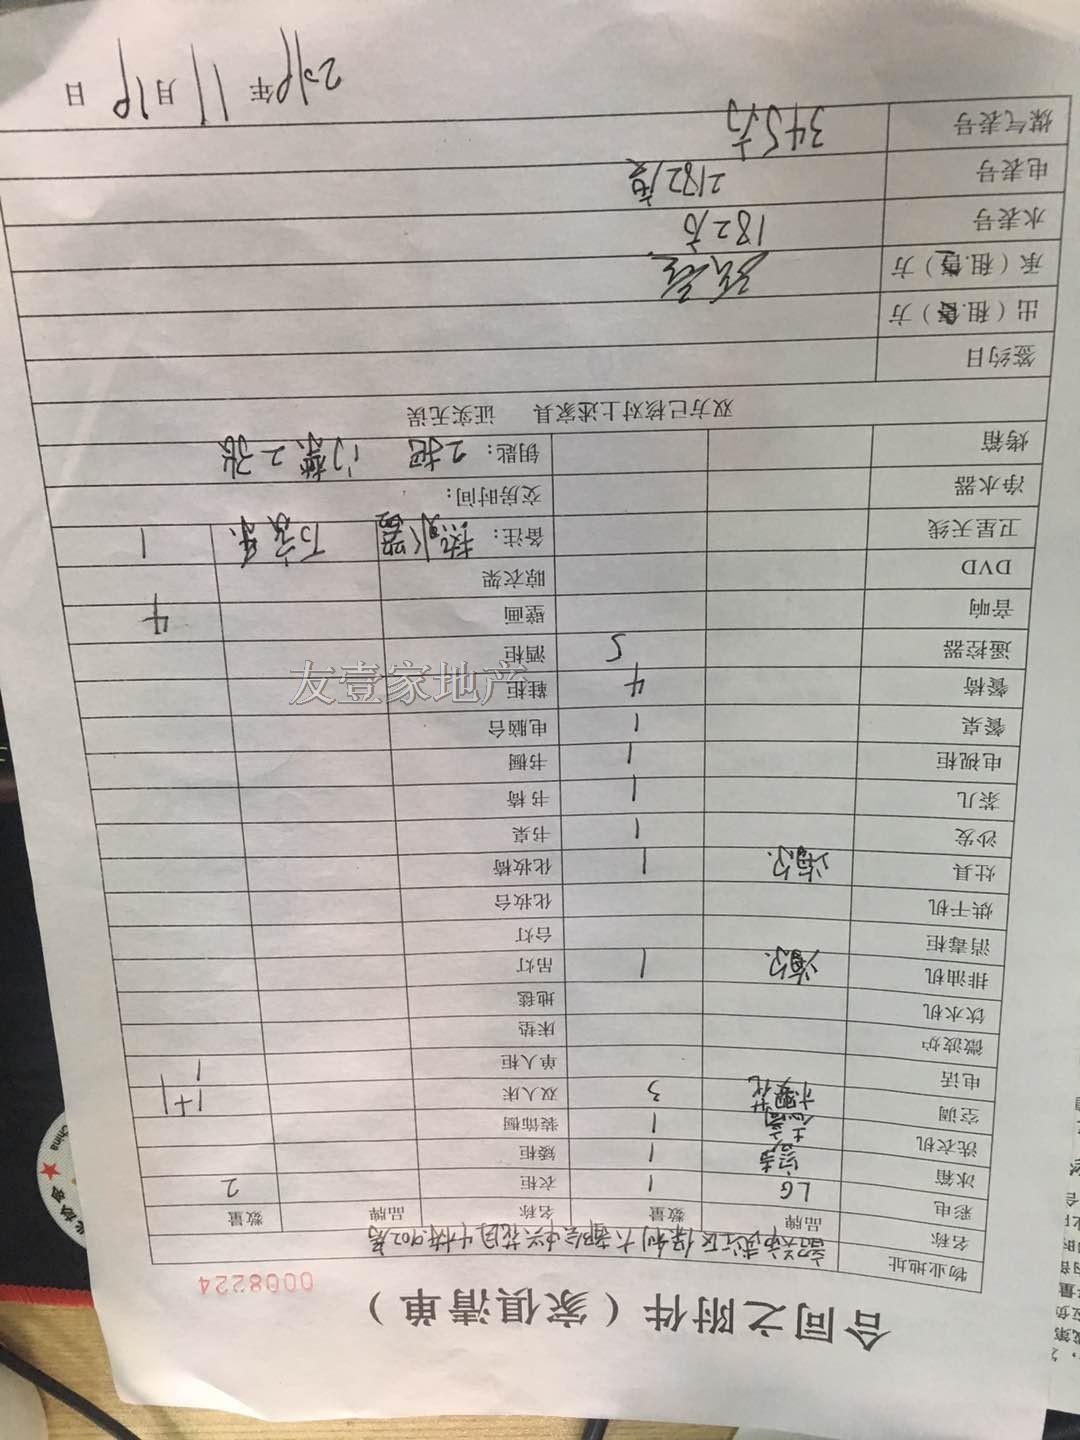 合同之附件（家俱清单）
0008224
物业地址 区保利大都会中兴花园4栋902房
名称 品牌 数量 名称 品牌 数量
彩电 LG 1 衣柜 2
冰箱 1 矮柜
洗衣机 1 装饰橱
空调 3 双人床 1+1
电话 单人柜 1
微波炉 床垫
饮水机 地毯
排油机 海尔 1 吊灯
消毒柜 台灯
烘干机 化妆台
灶具 海尔 1 化妆椅
沙发 1 书桌
茶几 1 书椅
电视柜 1 书橱
餐桌 1 电脑台
餐椅 4 鞋柜
遥控器 5 酒柜
音响 壁画 4
DVD 晾衣架
卫星天线 备注：热水器 万家乐 1
净水器 交房时间：
烤箱 钥匙：2把 门禁2张
双方已核对上述家具 证实无误
签约日
出（租.售）方
承（租.售）方
水表号 182方
电表号 2182度
煤气表号 345方
年11月19日
友壹家地产
China